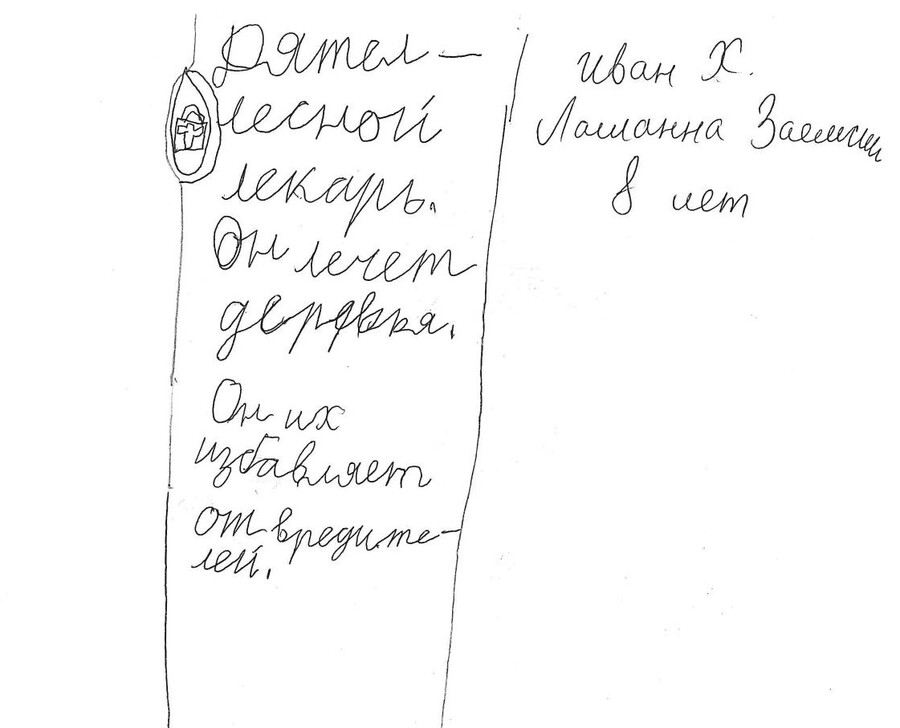 Дятел –
лесной
лекарь.
Он лечет
деревья.
Он их
избавляет
от вредите-
лей.
Иван Х.
8 лет